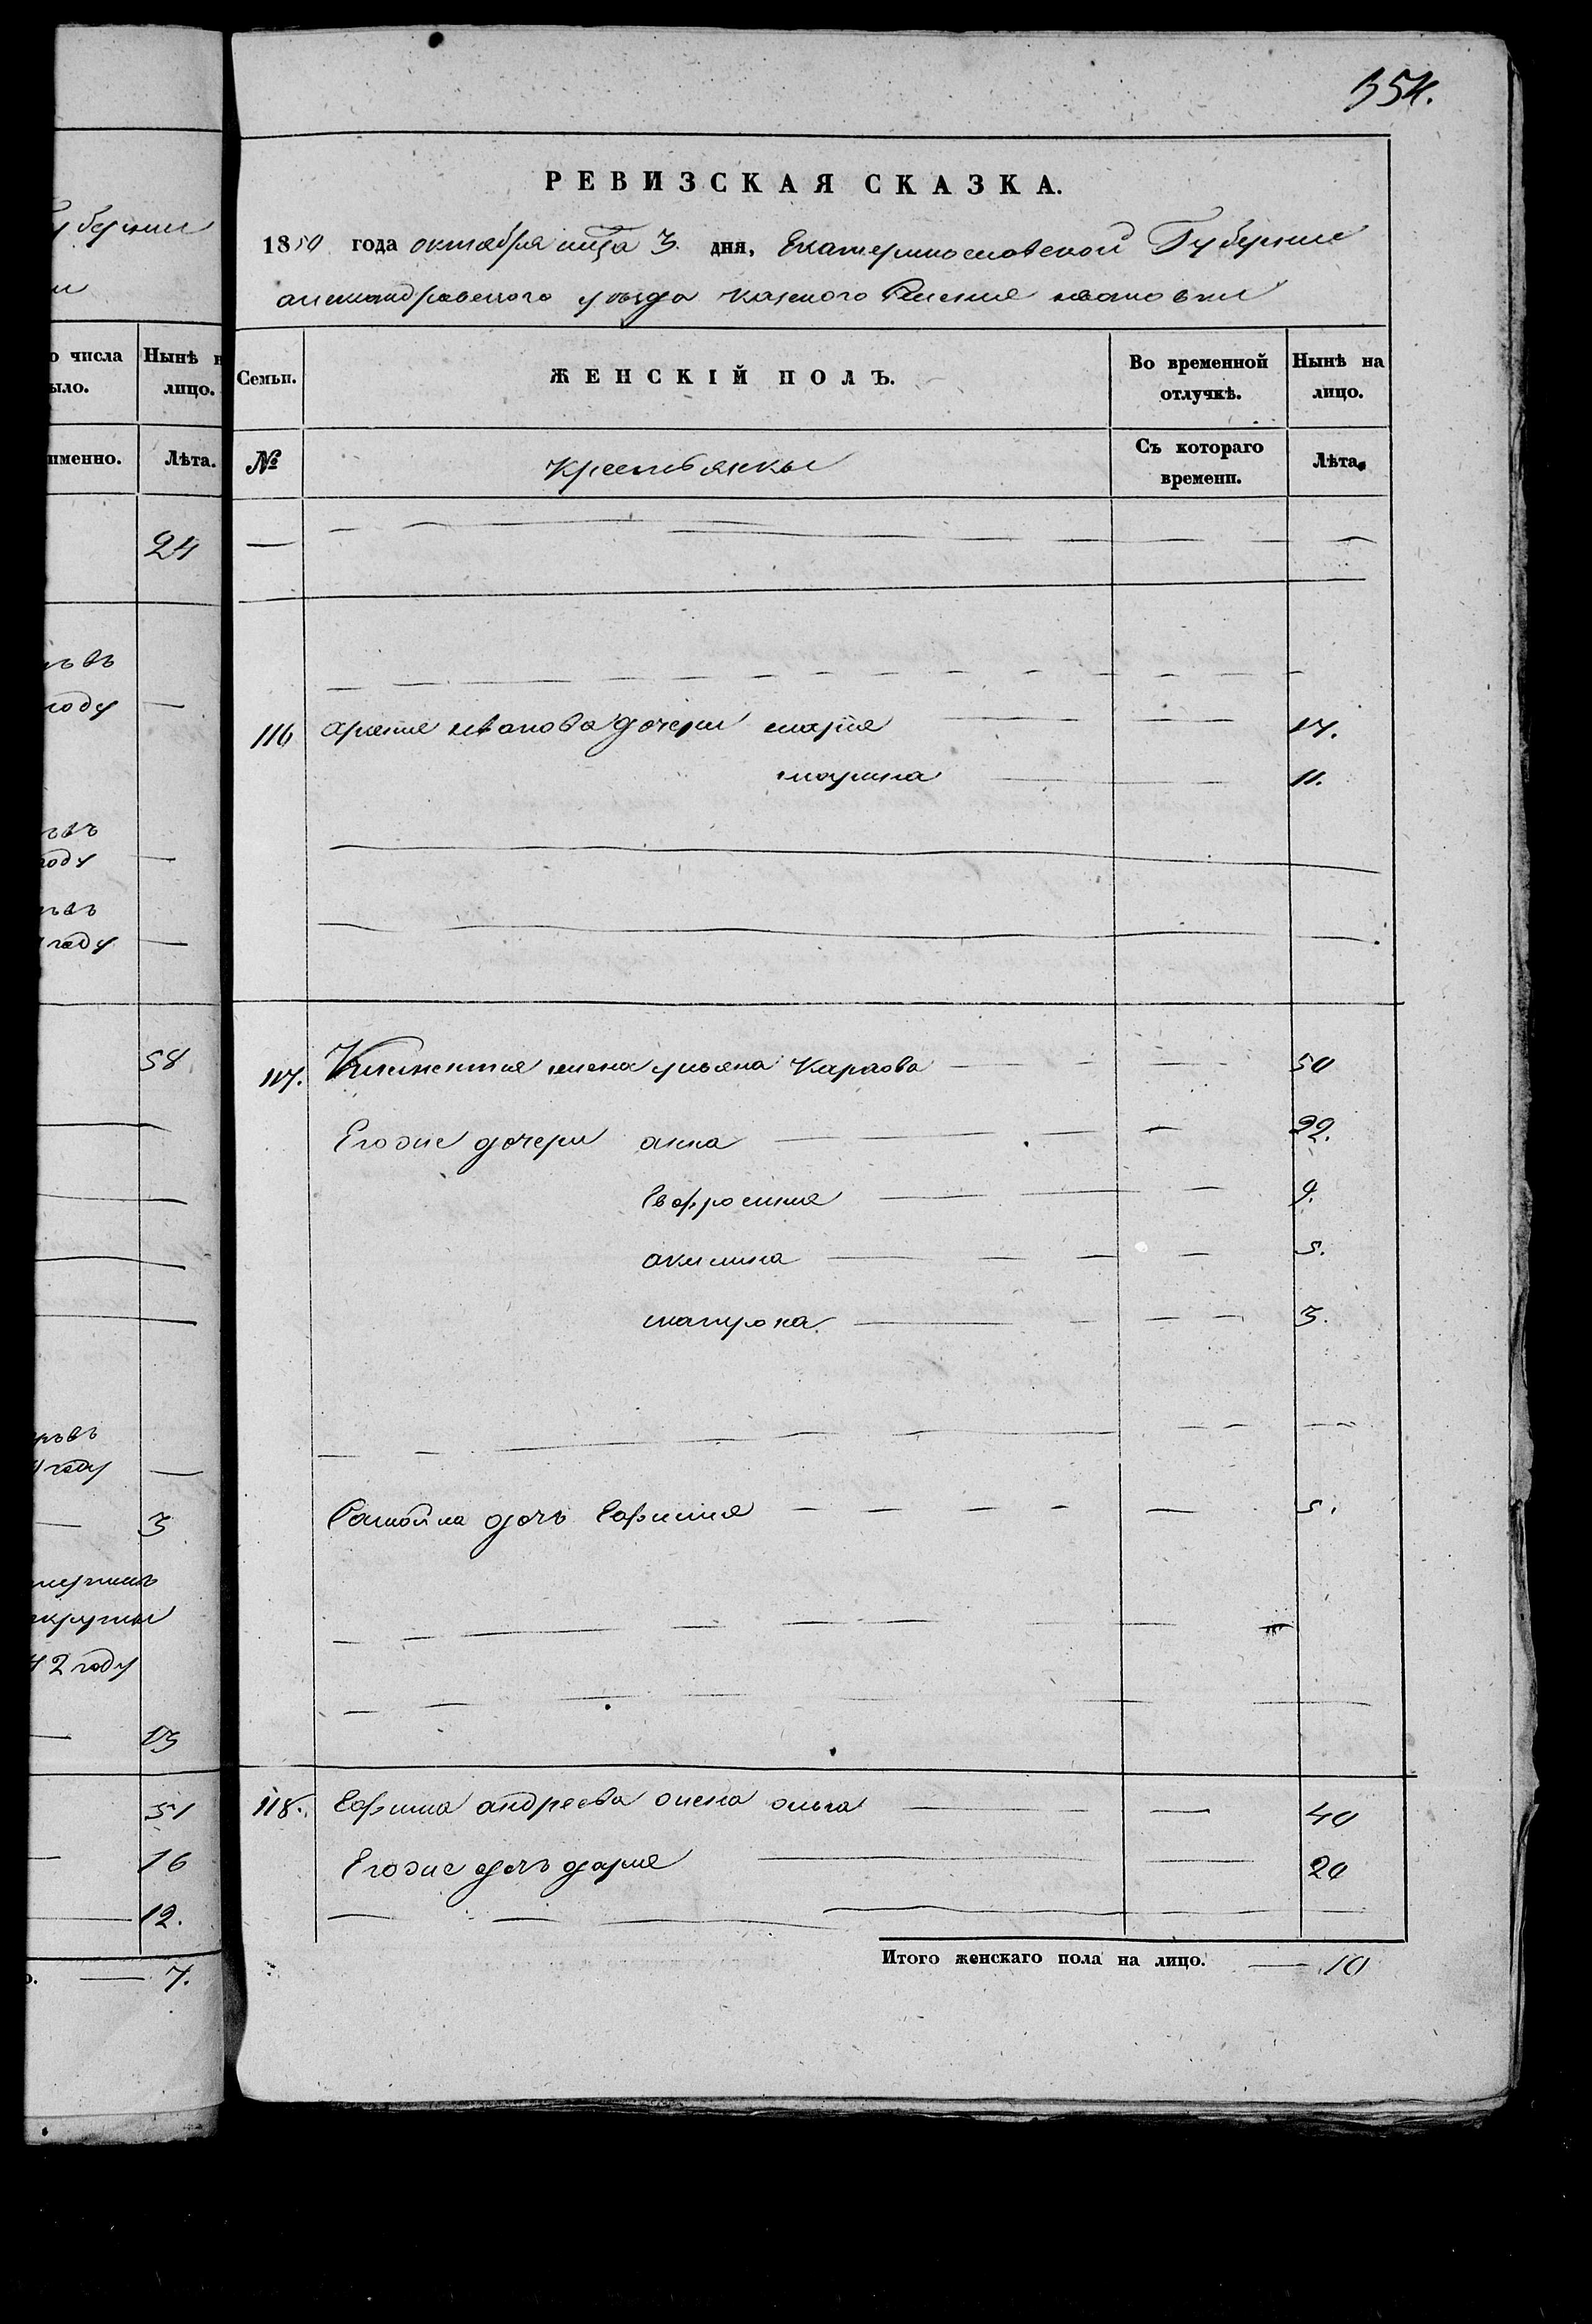 354.
губернии
и
о числа
Нынѣ н
ыло.
лицо.
именно.
Лѣта.
24
ръ въ
году —
ръ въ
году —
ръ въ
году —
58
ръ въ
году —
3
42 году
13
51
16
12.
о. — 7.
РЕВИЗСКАЯ СКАЗКА.
1850 года октября мца 3. дня, Екатеринославской Губернии
александровского уѣзда казеного Селения ивановки
Семьи.
ЖЕНСКІЙ ПОЛЪ.
Во временной отлучкѣ.
Нынѣ на лицо.
№
Крестьянки
Съ котораго времени.
Лѣта.
116 иванова дочери марія — 17.
марина — 11.
117. Климентия жена ульяна Карпова — 50
Егоже дочери анна — 22.
Евфросиния — 9.
акилина — 5.
матрона — 3.
дочь Ефимия — 5.
118. Ефима андреева жена ольга — 40
Егоже дочь дария — 20
Итого женскаго пола на лицо. — 10